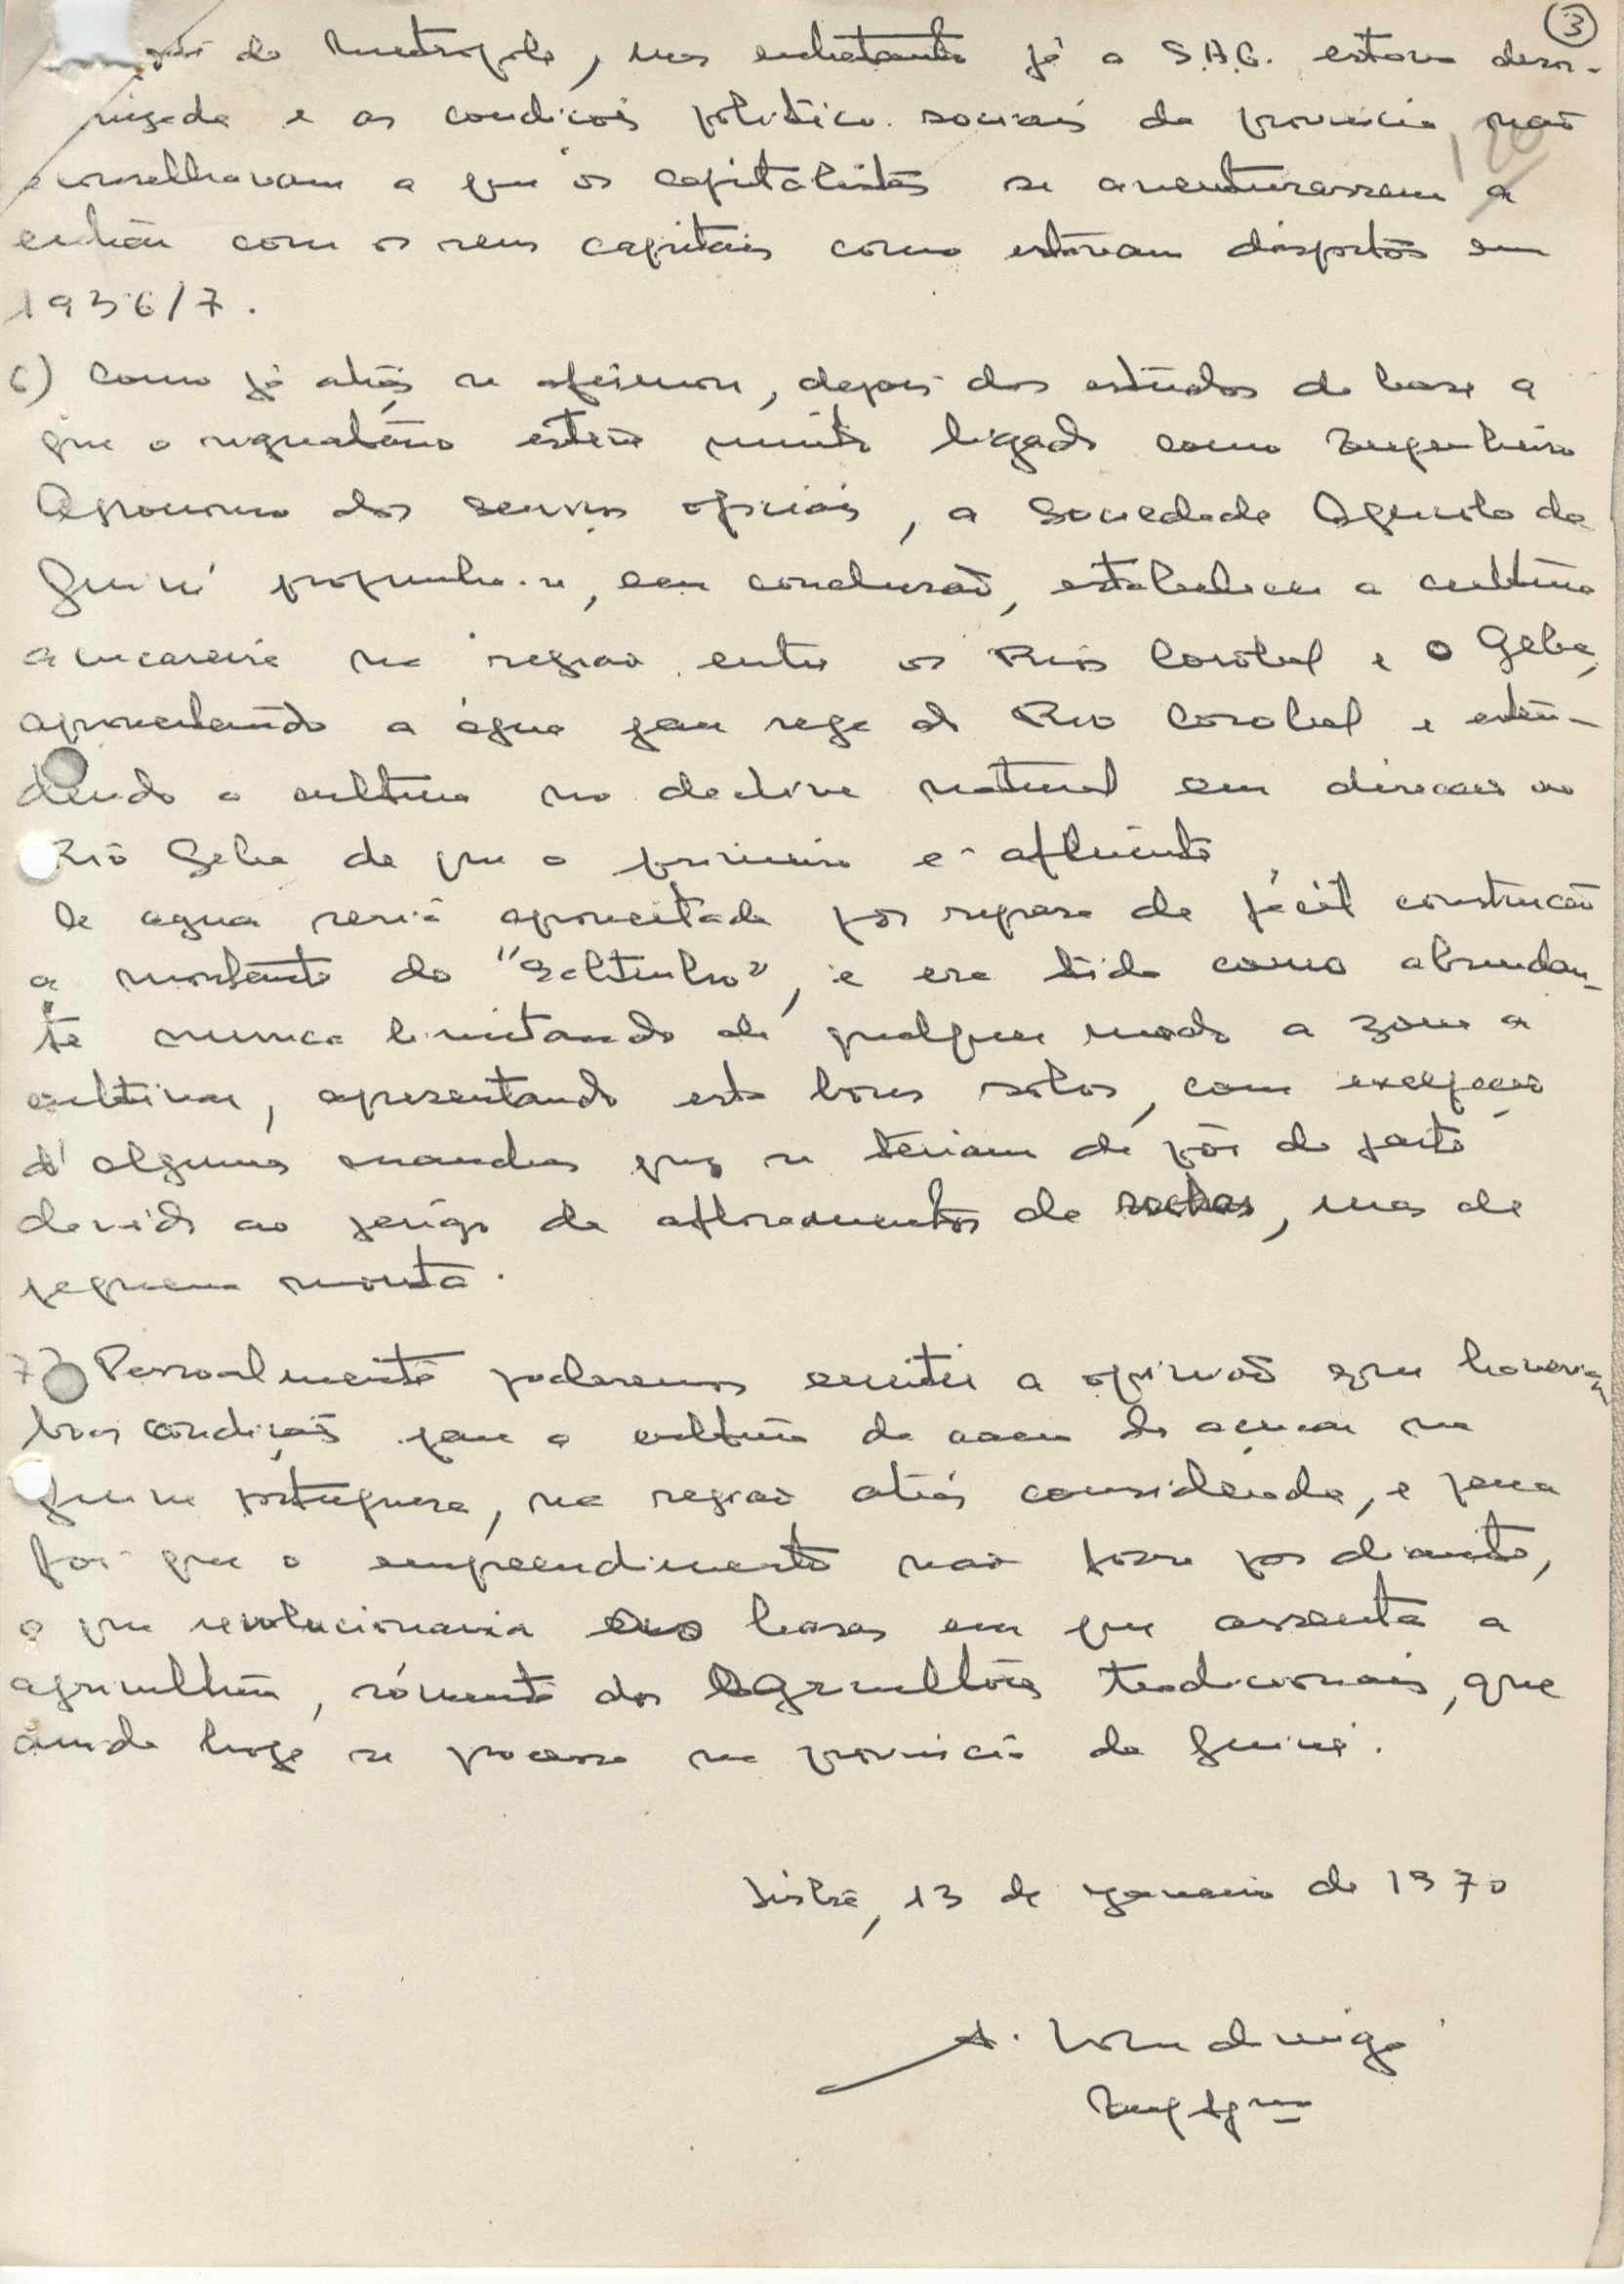 3
da Metropole, mas entretanto já a S.A.G. estava desor-
nizada e as condicois politico-sociais da provincia não
aconselhavam a que os capitalistas se aventurassem a
então com os seus capitais como estavam dispostos em
1936/7.
6) Como já atrás se afirmou, depois dos estudos de base a
que o signatário esteve muito ligado como Engenheiro
Agronomo dos Serviços oficiais, a Sociedade Agricola da
Guiné propunha-se, em conclusão, estabelecer a cultura
açucareira na região entre os Rios Corubal e o Geba,
aproveitando a água para rega do Rio Corubal e esten-
dendo a cultura no declive natural em direcção ao
Rio Geba de que o primeiro é afluente.
A agua seria aproveitada por represa de fácil construção
a montante do "Saltinho", e era tida como abundan-
te nunca limitando de qualquer modo a zona a
cultivar, apresentando esta bons solos, com excepção
d'algumas manchas que se teriam de pôr de parte
devido ao perigo de afloramentos de rochas, mas de
pequena monta.
7) Personalmente poderemos emitir a opinião que haveria
boas condições para a cultura da cana de açucar na
Guiné portuguesa, na região atrás considerada, e pena
foi que o empreendimento não fosse por diante,
o que revolucionaria as bases em que assenta a
agricultura, sómente dos Agricultores tradicionais, que
ainda hoje se processa na provincia da Guiné.
Lisboa, 13 de Janeiro de 1970
A.
Eng Agrº